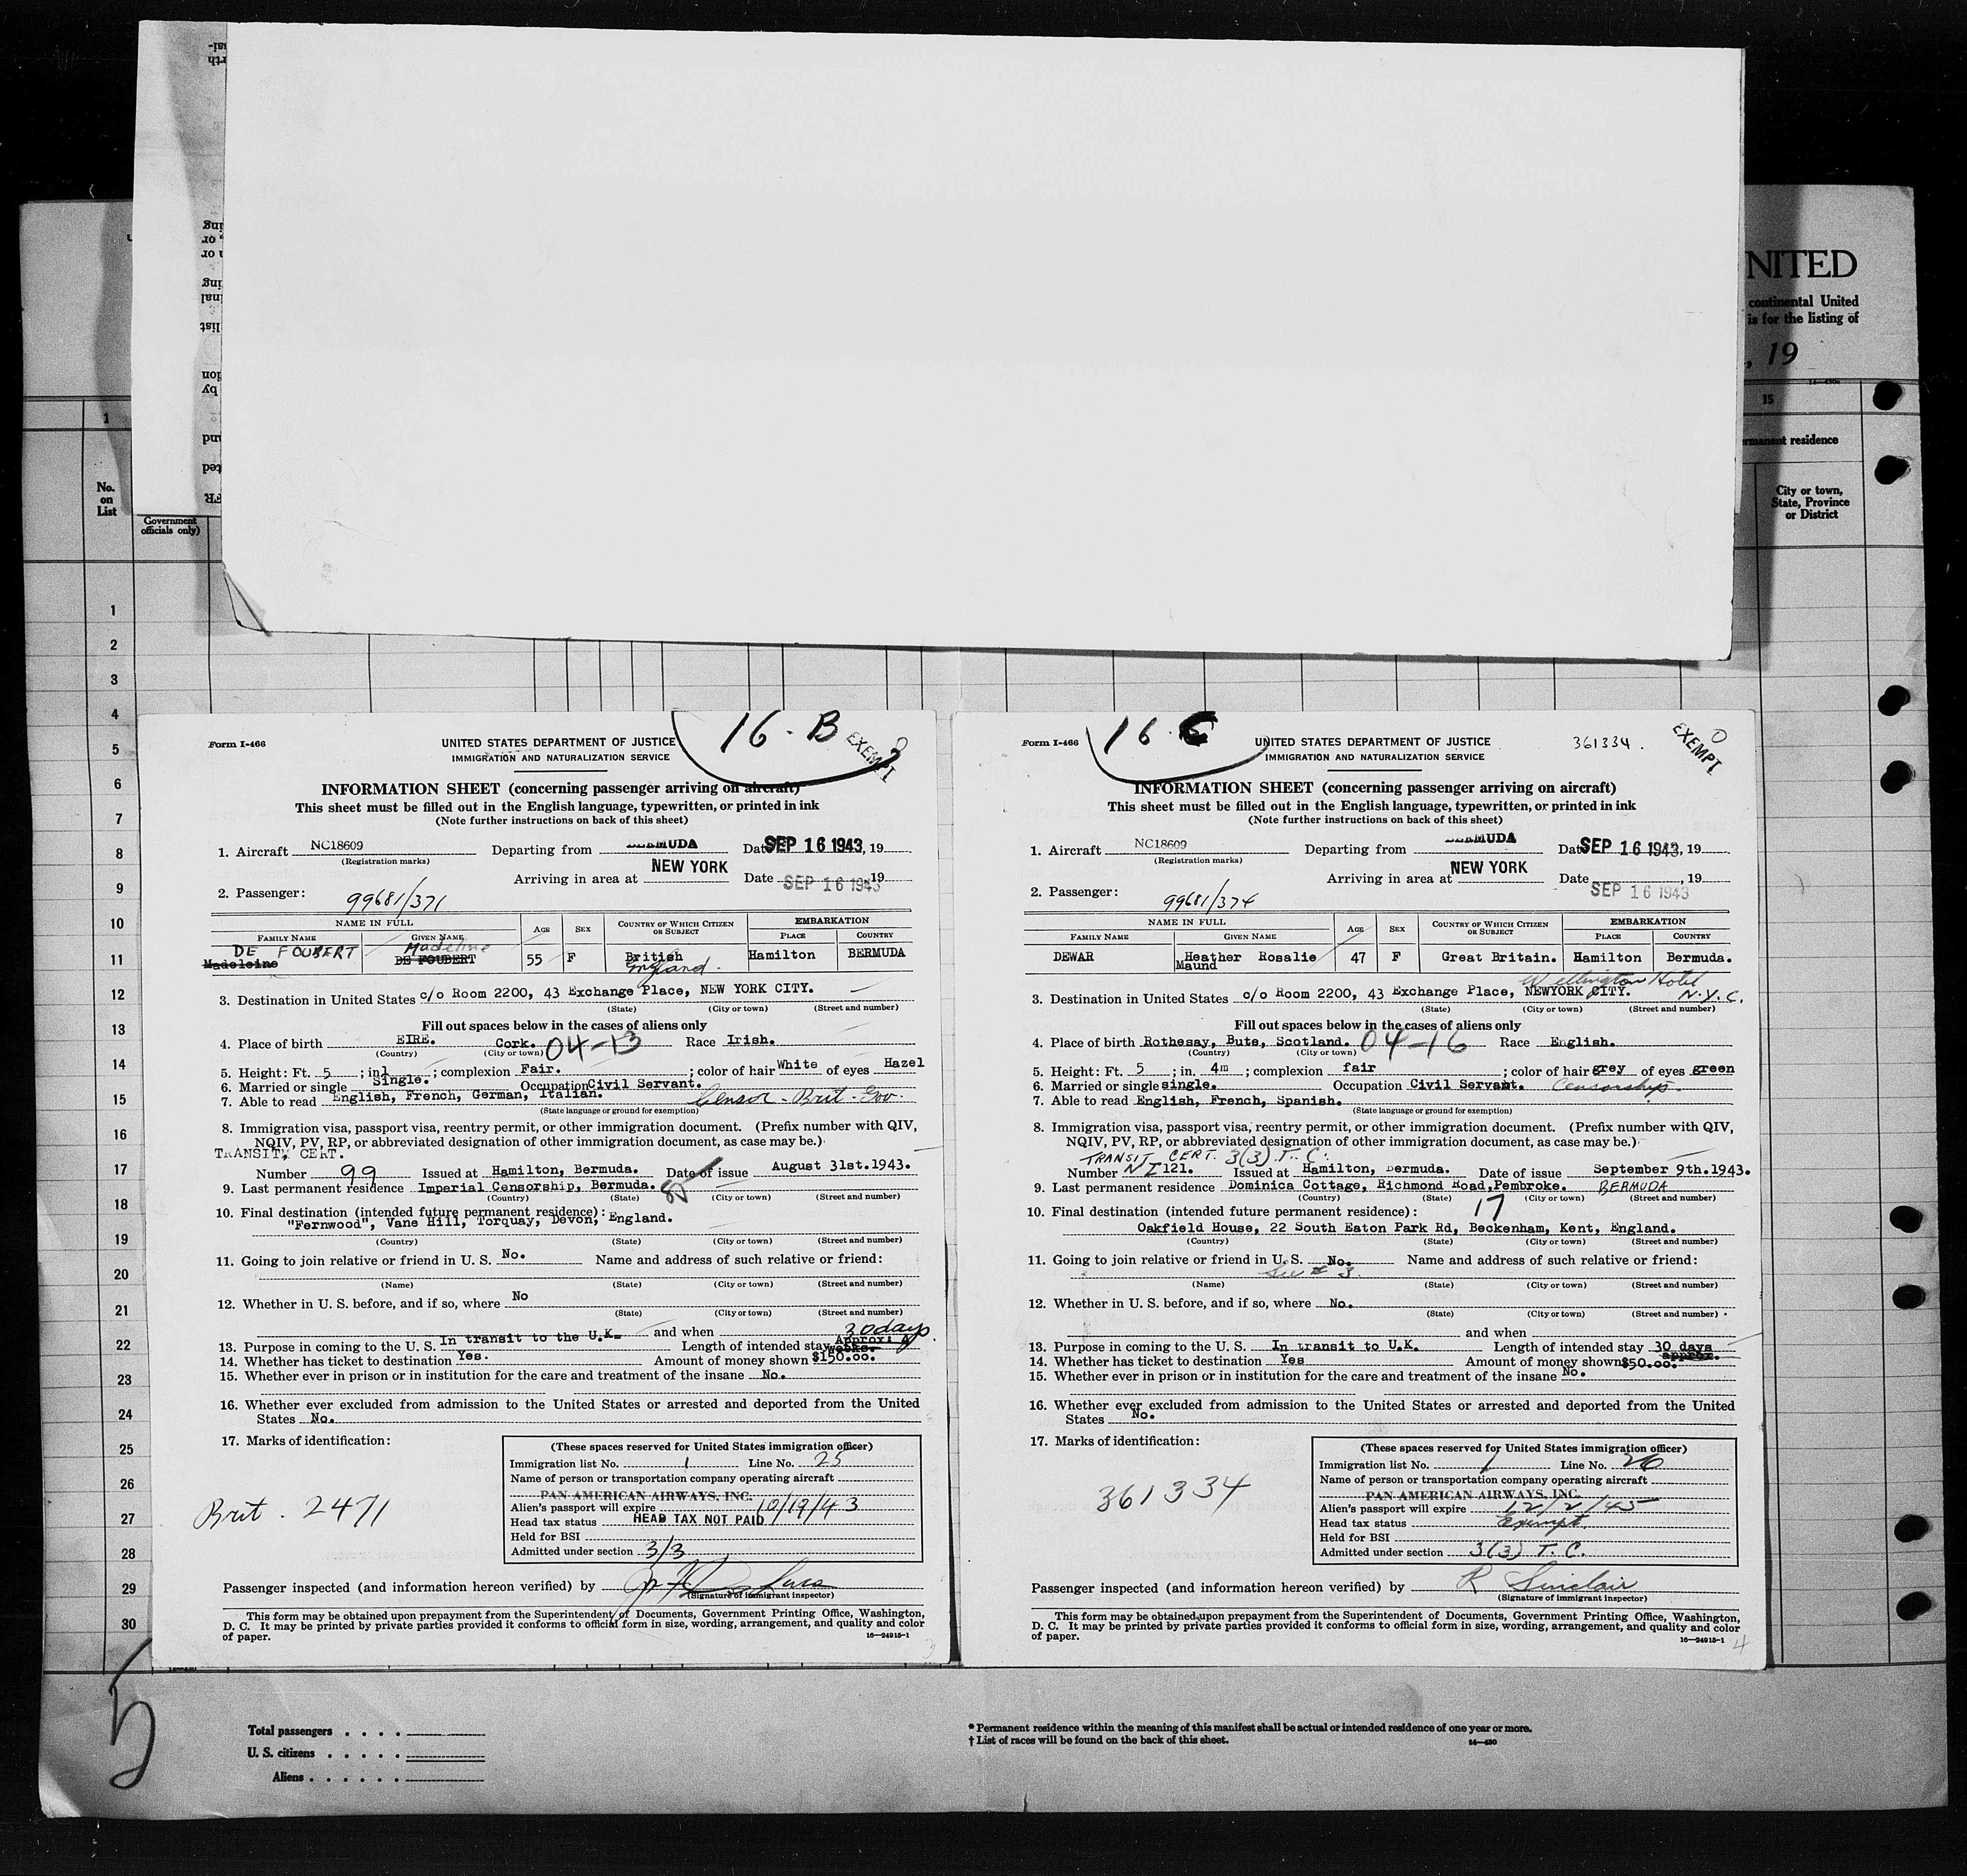 NITED
continental United
is for the listing of
, 19
15
permanent residence
City or town,
State, Province
or District
1
No.
on
List
Government
officials only)
1
2
3
4
5
6
7
8
9
10
11
12
13
14
15
16
17
18
19
20
21
22
23
24
25
26
27
28
29
30
16 - B
EXEMPT
Form I-466
UNITED STATES DEPARTMENT OF JUSTICE
IMMIGRATION AND NATURALIZATION SERVICE
INFORMATION SHEET (concerning passenger arriving on aircraft)
This sheet must be filled out in the English language, typewritten, or printed in ink
(Note further instructions on back of this sheet)
1. Aircraft NC18609 Departing from BERMUDA Date SEP 16 1943, 19
(Registration marks)
Arriving in area at NEW YORK Date SEP 16 1943 19
2. Passenger: 99681/371
NAME IN FULL AGE SEX COUNTRY OF WHICH CITIZEN OR SUBJECT EMBARKATION
FAMILY NAME GIVEN NAME PLACE COUNTRY
DE FOUBERT Madeline
Madeleine DE FOUBERT 55 F British Hamilton BERMUDA
England.
3. Destination in United States c/o Room 2200, 43 Exchange Place, NEW YORK CITY.
(State) (City or town) (Street and number)
Fill out spaces below in the cases of aliens only
4. Place of birth EIRE. Cork. 04-13 Race Irish.
(Country) (City or town)
5. Height: Ft. 5 ; in 1 ; complexion Fair. ; color of hair White of eyes Hazel
6. Married or single Single. Occupation Civil Servant.
7. Able to read English, French, German, Italian. Censor - Brit - Gov.
(State language or ground for exemption)
8. Immigration visa, passport visa, reentry permit, or other immigration document. (Prefix number with QIV,
NQIV, PV, RP, or abbreviated designation of other immigration document, as case may be.)
TRANSIT, CERT.
Number 99 Issued at Hamilton, Bermuda. Date of issue August 31st.1943.
9. Last permanent residence Imperial Censorship, Bermuda.
(Country) (State) (City or town) (Street and number)
10. Final destination (intended future permanent residence):
"Fernwood", Vane Hill, Torquay, Devon, England.
(Country) (State) (City or town) (Street and number)
11. Going to join relative or friend in U. S. No. Name and address of such relative or friend:
(Name) (State) (City or town) (Street and number)
12. Whether in U. S. before, and if so, where No
(State) (City or town) (Street and number)
and when 30 days
13. Purpose in coming to the U. S. In transit to the U.K. Length of intended stay Approx: 4 weeks.
14. Whether has ticket to destination Yes. Amount of money shown $150.00.
15. Whether ever in prison or in institution for the care and treatment of the insane No.
16. Whether ever excluded from admission to the United States or arrested and deported from the United
States No.
17. Marks of identification:
Brit. 2471
(These spaces reserved for United States immigration officer)
Immigration list No. 1 Line No. 25
Name of person or transportation company operating aircraft
PAN AMERICAN AIRWAYS, INC.
Alien's passport will expire 10/19/43
Head tax status HEAD TAX NOT PAID
Held for BSI
Admitted under section 3/3
Passenger inspected (and information hereon verified) by
(Signature of immigrant inspector)
This form may be obtained upon prepayment from the Superintendent of Documents, Government Printing Office, Washington,
D. C. It may be printed by private parties provided it conforms to official form in size, wording, arrangement, and quality and color
of paper. 16—24915-1
3
16 C
361334.
EXEMPT
Form I-466
UNITED STATES DEPARTMENT OF JUSTICE
IMMIGRATION AND NATURALIZATION SERVICE
INFORMATION SHEET (concerning passenger arriving on aircraft)
This sheet must be filled out in the English language, typewritten, or printed in ink
(Note further instructions on back of this sheet)
1. Aircraft NC18609 Departing from BERMUDA Date SEP 16 1943, 19
(Registration marks)
Arriving in area at NEW YORK Date SEP 16 1943, 19
2. Passenger: 99681/374
NAME IN FULL AGE SEX COUNTRY OF WHICH CITIZEN OR SUBJECT EMBARKATION
FAMILY NAME GIVEN NAME PLACE COUNTRY
DEWAR Heather Rosalie 47 F Great Britain. Hamilton Bermuda.
Maund
Wellington Hotel
3. Destination in United States c/o Room 2200, 43 Exchange Place, NEWYORK CITY. N.Y.C.
(State) (City or town) (Street and number)
Fill out spaces below in the cases of aliens only
4. Place of birth Rothesay, Bute, Scotland. 04-16 Race English.
(Country) (City or town)
5. Height: Ft. 5 ; in. 4m ; complexion fair ; color of hair grey of eyes green
6. Married or single single. Occupation Civil Servant. Censorship.
7. Able to read English, French, Spanish.
(State language or ground for exemption)
8. Immigration visa, passport visa, reentry permit, or other immigration document. (Prefix number with QIV,
NQIV, PV, RP, or abbreviated designation of other immigration document, as case may be.)
TRANSIT CERT. 3(3) T. C.
Number NI 121. Issued at Hamilton, Bermuda. Date of issue September 9th.1943.
9. Last permanent residence Dominica Cottage, Richmond Road, Pembroke. BERMUDA
(Country) (State) (City or town) (Street and number)
10. Final destination (intended future permanent residence): 17
Oakfield House, 22 South Eaton Park Rd, Beckenham, Kent, England.
(Country) (State) (City or town) (Street and number)
11. Going to join relative or friend in U. S. No. Name and address of such relative or friend:
See # 3.
(Name) (State) (City or town) (Street and number)
12. Whether in U. S. before, and if so, where No.
(State) (City or town) (Street and number)
and when
13. Purpose in coming to the U. S. In transit to U.K. Length of intended stay 30 days
approx.
14. Whether has ticket to destination Yes Amount of money shown $50.00.
15. Whether ever in prison or in institution for the care and treatment of the insane No.
16. Whether ever excluded from admission to the United States or arrested and deported from the United
States No.
17. Marks of identification:
361334
(These spaces reserved for United States immigration officer)
Immigration list No. 1 Line No. 26
Name of person or transportation company operating aircraft
PAN AMERICAN AIRWAYS, INC.
Alien's passport will expire 12/2/45
Head tax status Exempt.
Held for BSI
Admitted under section 3(3) T. C.
Passenger inspected (and information hereon verified) by R Sinclair
(Signature of immigrant inspector)
This form may be obtained upon prepayment from the Superintendent of Documents, Government Printing Office, Washington,
D. C. It may be printed by private parties provided it conforms to official form in size, wording, arrangement, and quality and color
of paper. 16—24915-1
4
5
Total passengers . . . .
U. S. citizens . . . . .
Aliens . . . . . .
* Permanent residence within the meaning of this manifest shall be actual or intended residence of one year or more.
† List of races will be found on the back of this sheet.